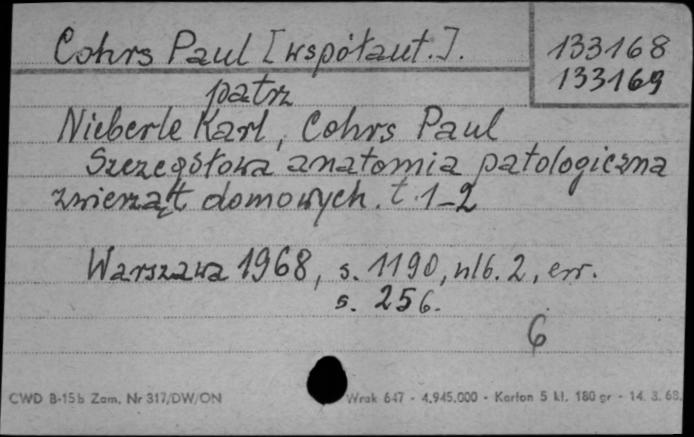 Cohrs Paul [współaut.].
133168
133169
patrz
Nieberle Karl, Cohrs Paul
Szczegółowa anatomia patologiczna
zwierząt domowych. t. 1-2
Warszawa 1968, s. 1190, nlb. 2, err.
s. 256.
6
CWD B-15b Zam. Nr 317/DW/ON
Wrak 647 - 4.945.000 - Karton 5 kl. 180 gr - 14. 3. 68.